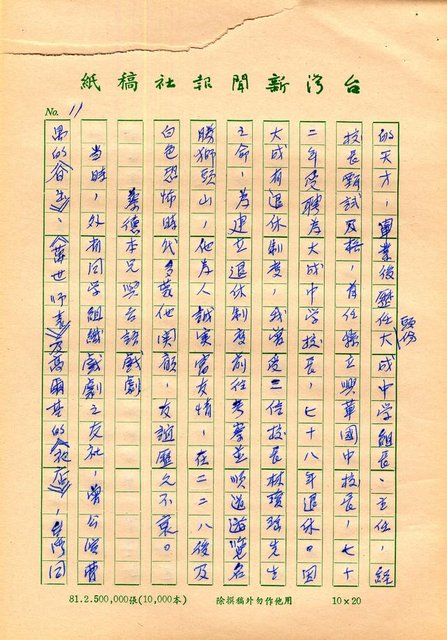 台灣新聞報社稿紙
No. 11
的天才，畢業後歷任大成中学組長、主任，經
頭份
校長甄試及格，曾任獅潭國中校長，七十
二年受聘為大成中学校長，七十八年退休。因
大成有退休制度，我曾受二位校長林瓊瑤先生
之命，為建立退休制度前往考察並順道遊覽名
勝獅頭山，他為人誠實富友情，在二二八後及
白色恐怖時代多蒙他関顧，友誼歷久不衰。
蔡德本兄與台語戲劇
當時，外省同学組織戲劇之友社，曾公演曹
禺的《日出》、《萬世師表》及高爾基的《夜店》，台灣同
81.2.500,000張(10,000本)
除撰稿外勿作他用
10×20